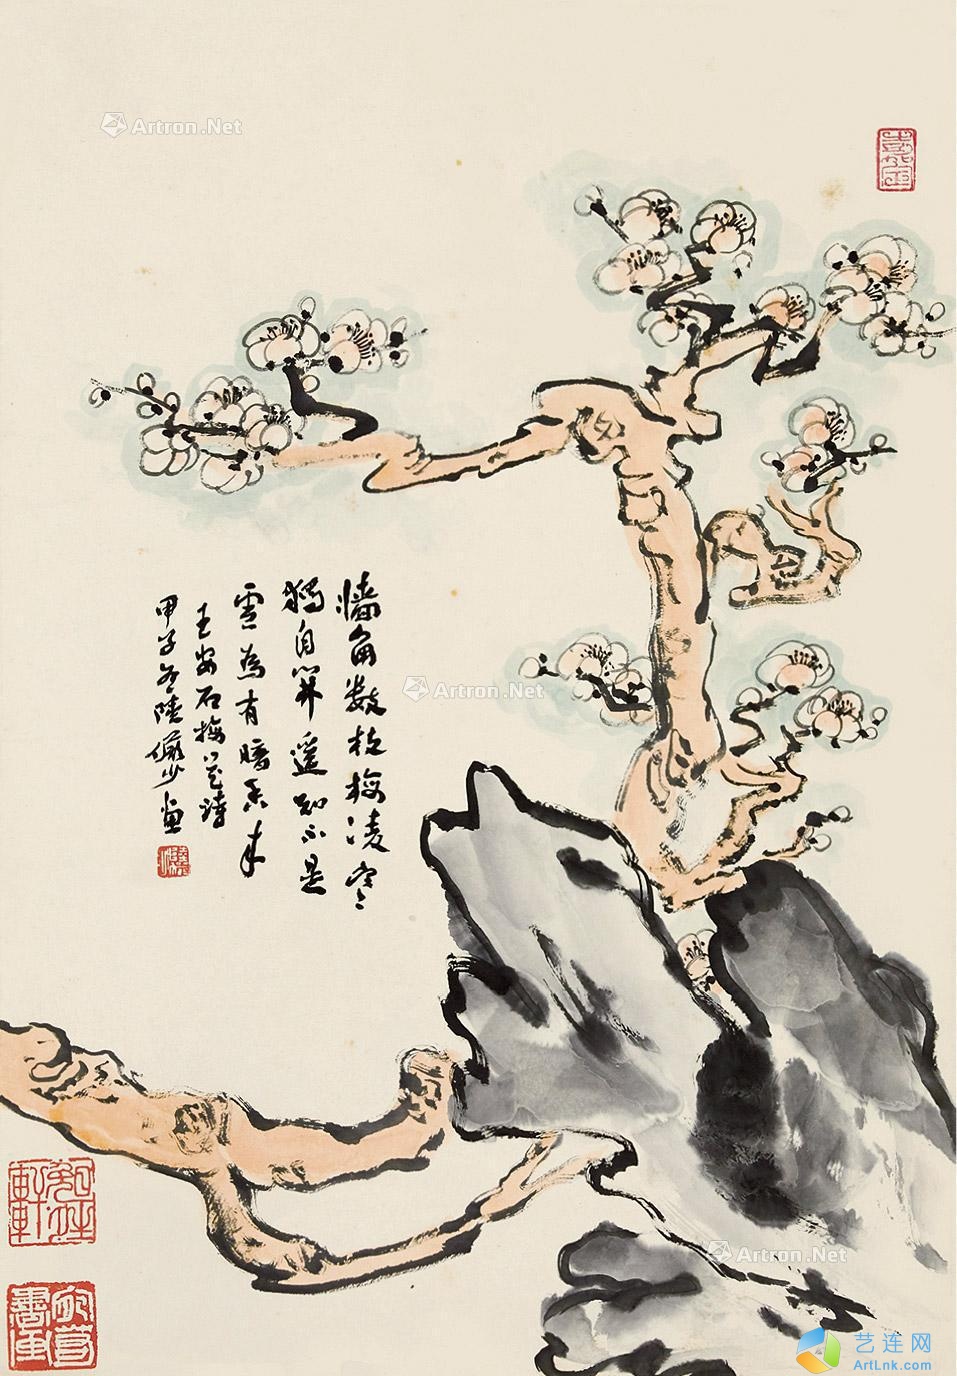 Artron.Net
嘉定
牆角數枝梅凌寒
獨自開遥知不是
雪為有暗香来
王安石梅花詩
甲子冬陸儼少畫
Artron.Net
Artron.Net
艺连网
ArtLnk.com